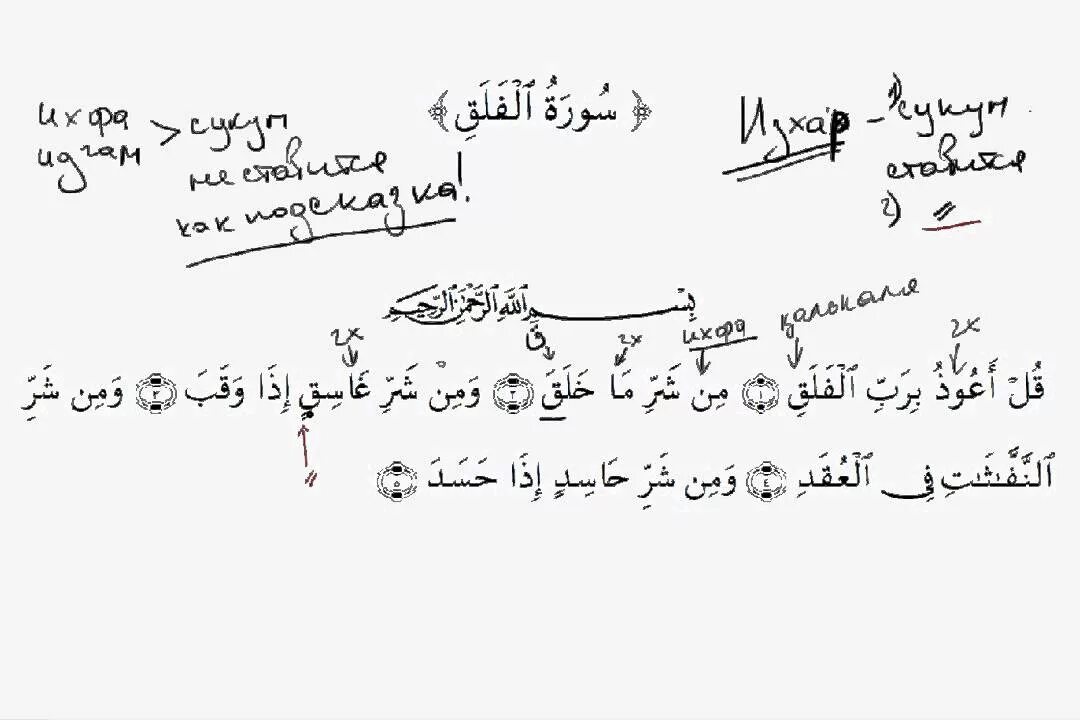 ихфа
идгам > сукун
не ставится
как подсказка!
﴿ سُورَةُ ٱلْفَلَقِ ﴾
Изхар - 1) сукун
ставится
2) //
بِسْمِ ٱللَّهِ ٱلرَّحْمَٰنِ ٱلرَّحِيمِ
2х قْ 2х ихфа қалькаля 2х
قُلْ أَعُوذُ بِرَبِّ ٱلْفَلَقِ ۝١ مِن شَرِّ مَا خَلَقَ ۝٢ وَمِنْ شَرِّ غَاسِقٍ إِذَا وَقَبَ ۝٣ وَمِن شَرِّ
//
ٱلنَّفَّـٰثَـٰتِ فِى ٱلْعُقَدِ ۝٤ وَمِن شَرِّ حَاسِدٍ إِذَا حَسَدَ ۝٥